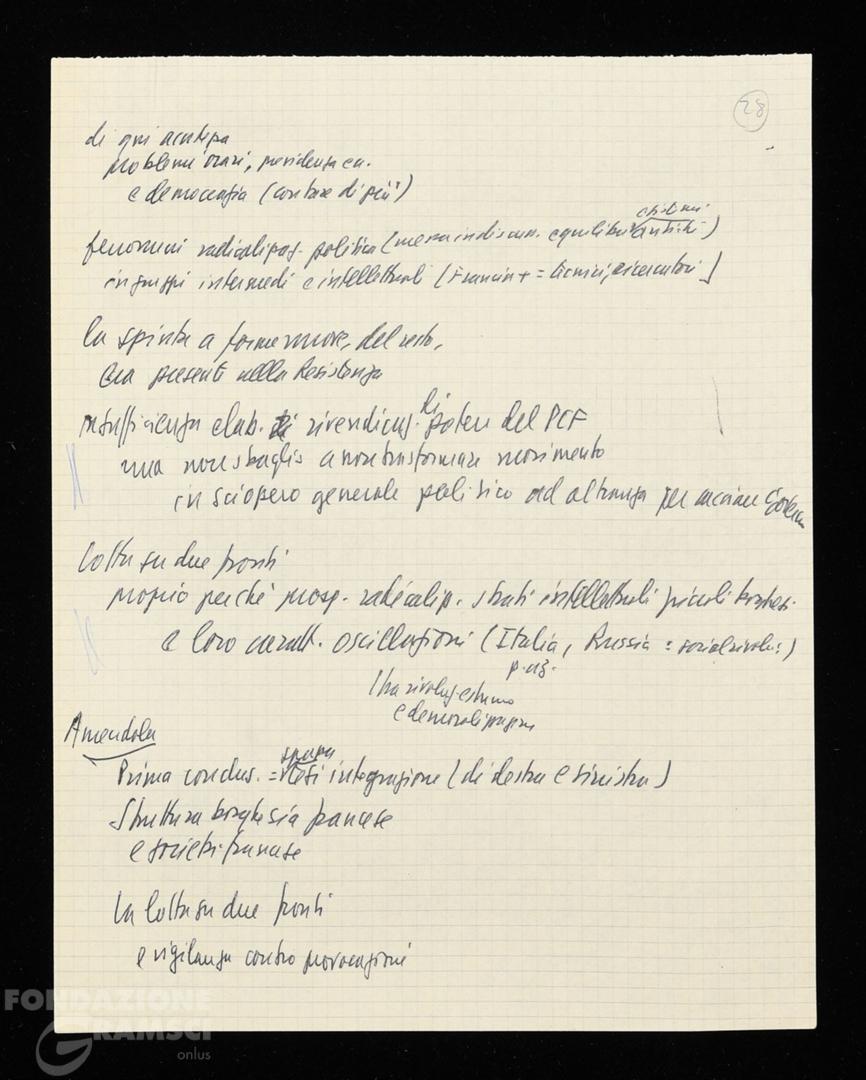 28
di qui acutezza
problemi orari, previdenza ecc.
e democrazia (contare di più)
fenomeni radicalizzaz. politica (messa in discuss. equilibri antichi)
in gruppi intermedi e intellettuali ( = tecnici, ricercatori)
la spinta a forme nuove, del resto,
era presente nella Resistenza
insufficienza elab. di rivendicaz. di potere del PCF
ma non sbaglio a non trasformare movimento
in sciopero generale politico ad oltranza per cacciare Governo
Lotta su due fronti
proprio perché prosp. radicalizz. strati intellettuali piccoli borghesi
e loro caratt. oscillazioni (Italia, Russia = socialrivoluz.)
p. es.
tra rivoluz. estremo
e demoralizzazione
Amendola
Prima conclus. = tesi integrazione (di destra e sinistra)
Struttura borghesia francese
e società francese
La lotta su due fronti
e vigilanza contro provocazioni
FONDAZIONE
GRAMSCI
onlus